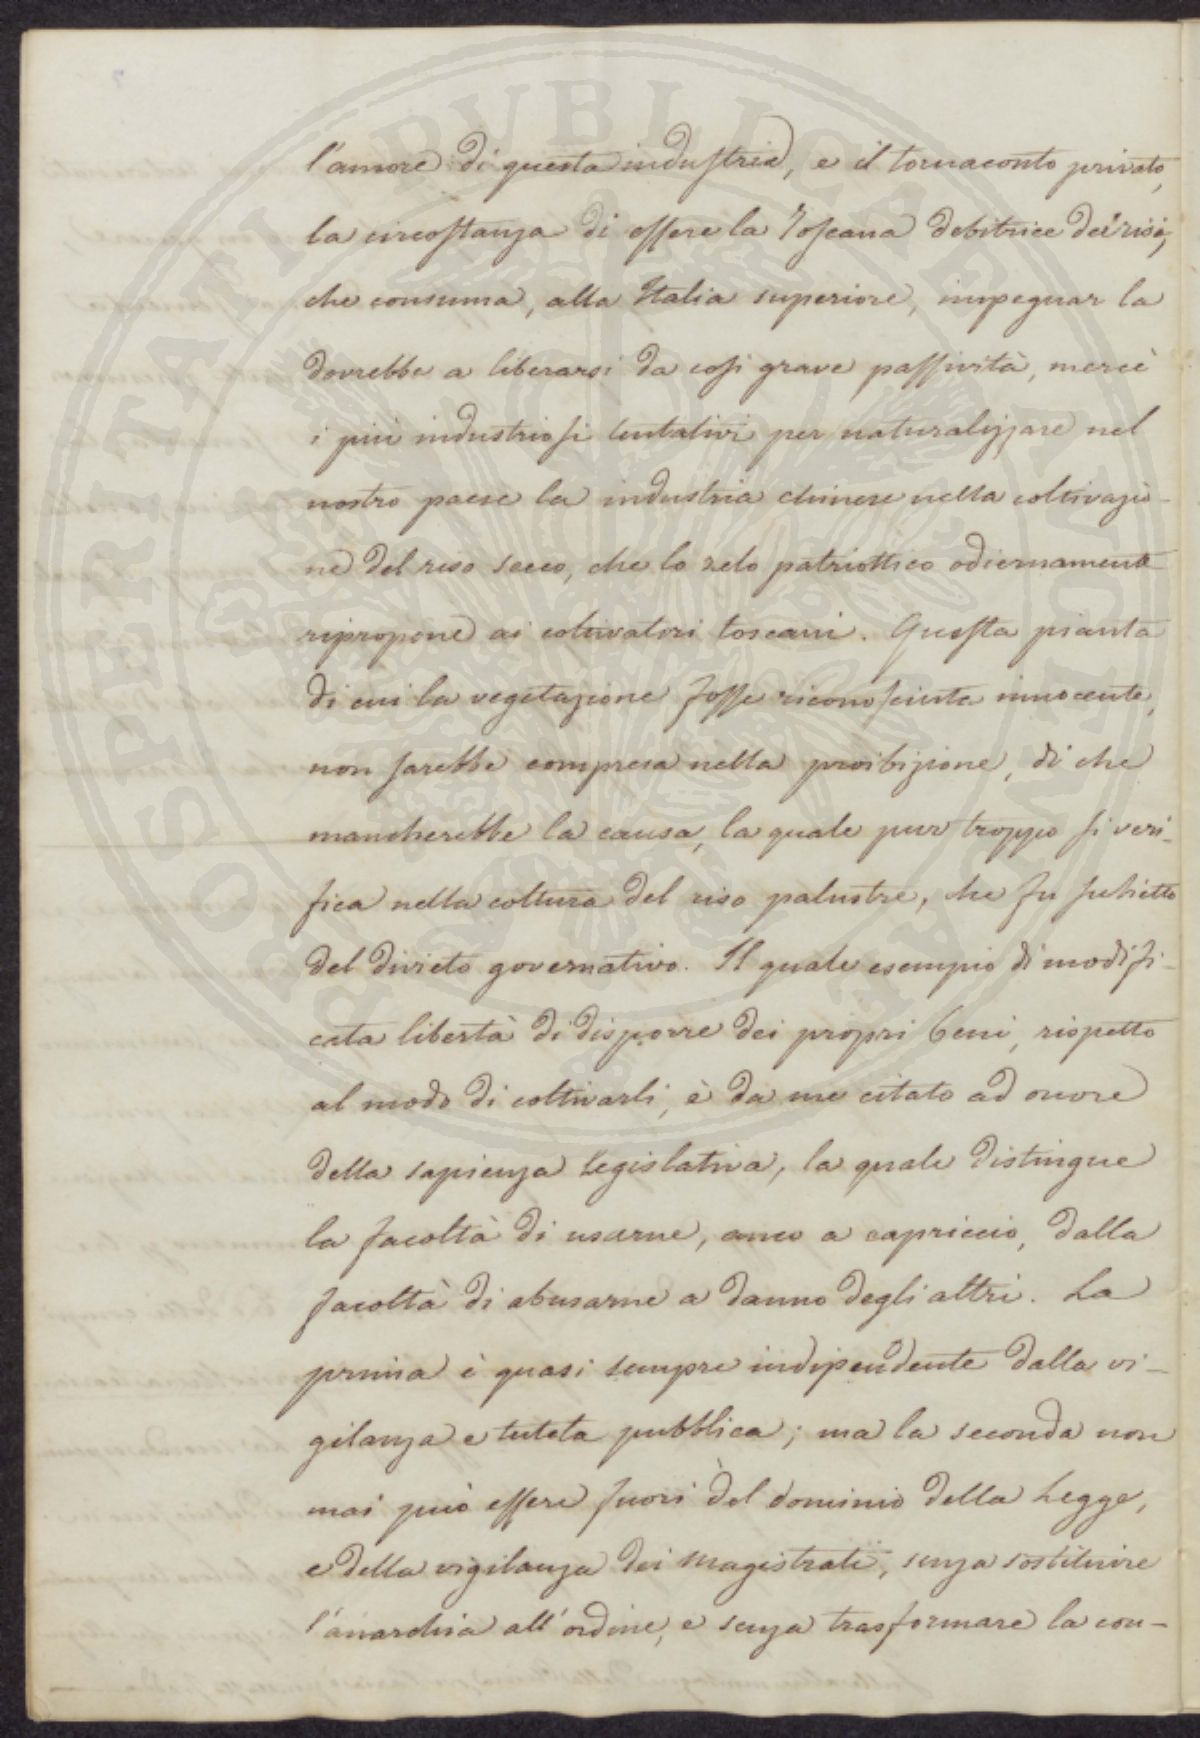 l'amore di questa industria, e il tornaconto privato,
la circostanza di essere la Toscana debitrice dei risi,
che consuma, alla Italia superiore, impegnar la
dovrebbe a liberarsi da così grave passività, mercè
i più industriosi tentativi per naturalizzare nel
nostro paese la industria chinese nella coltivazio-
ne del riso secco, che lo zelo patriottico odiernamente
ripropone ai coltivatori toscani. Questa pianta
di cui la vegetazione fosse riconosciuta innocente,
non sarebbe compresa nella proibizione, di che
mancherebbe la causa, la quale pur troppo si veri-
fica nella coltura del riso palustre, che fu subietto
del divieto governativo. Il quale esempio di modifi-
cata libertà di disporre dei propri beni, rispetto
al modo di coltivarli, è da me citato ad onore
della sapienza legislativa, la quale distingue
la facoltà di usarne, anco a capriccio, dalla
facoltà di abusarne a danno degli altri. La
prima è quasi sempre indipendente dalla vi-
gilanza e tutela pubblica; ma la seconda non
mai può essere fuori del dominio della Legge,
e della vigilanza dei Magistrati, senza sostituire
l'anarchia all'ordine, e senza trasformare la con-
PROSPERITATI PUBLICAE AUGENDAE